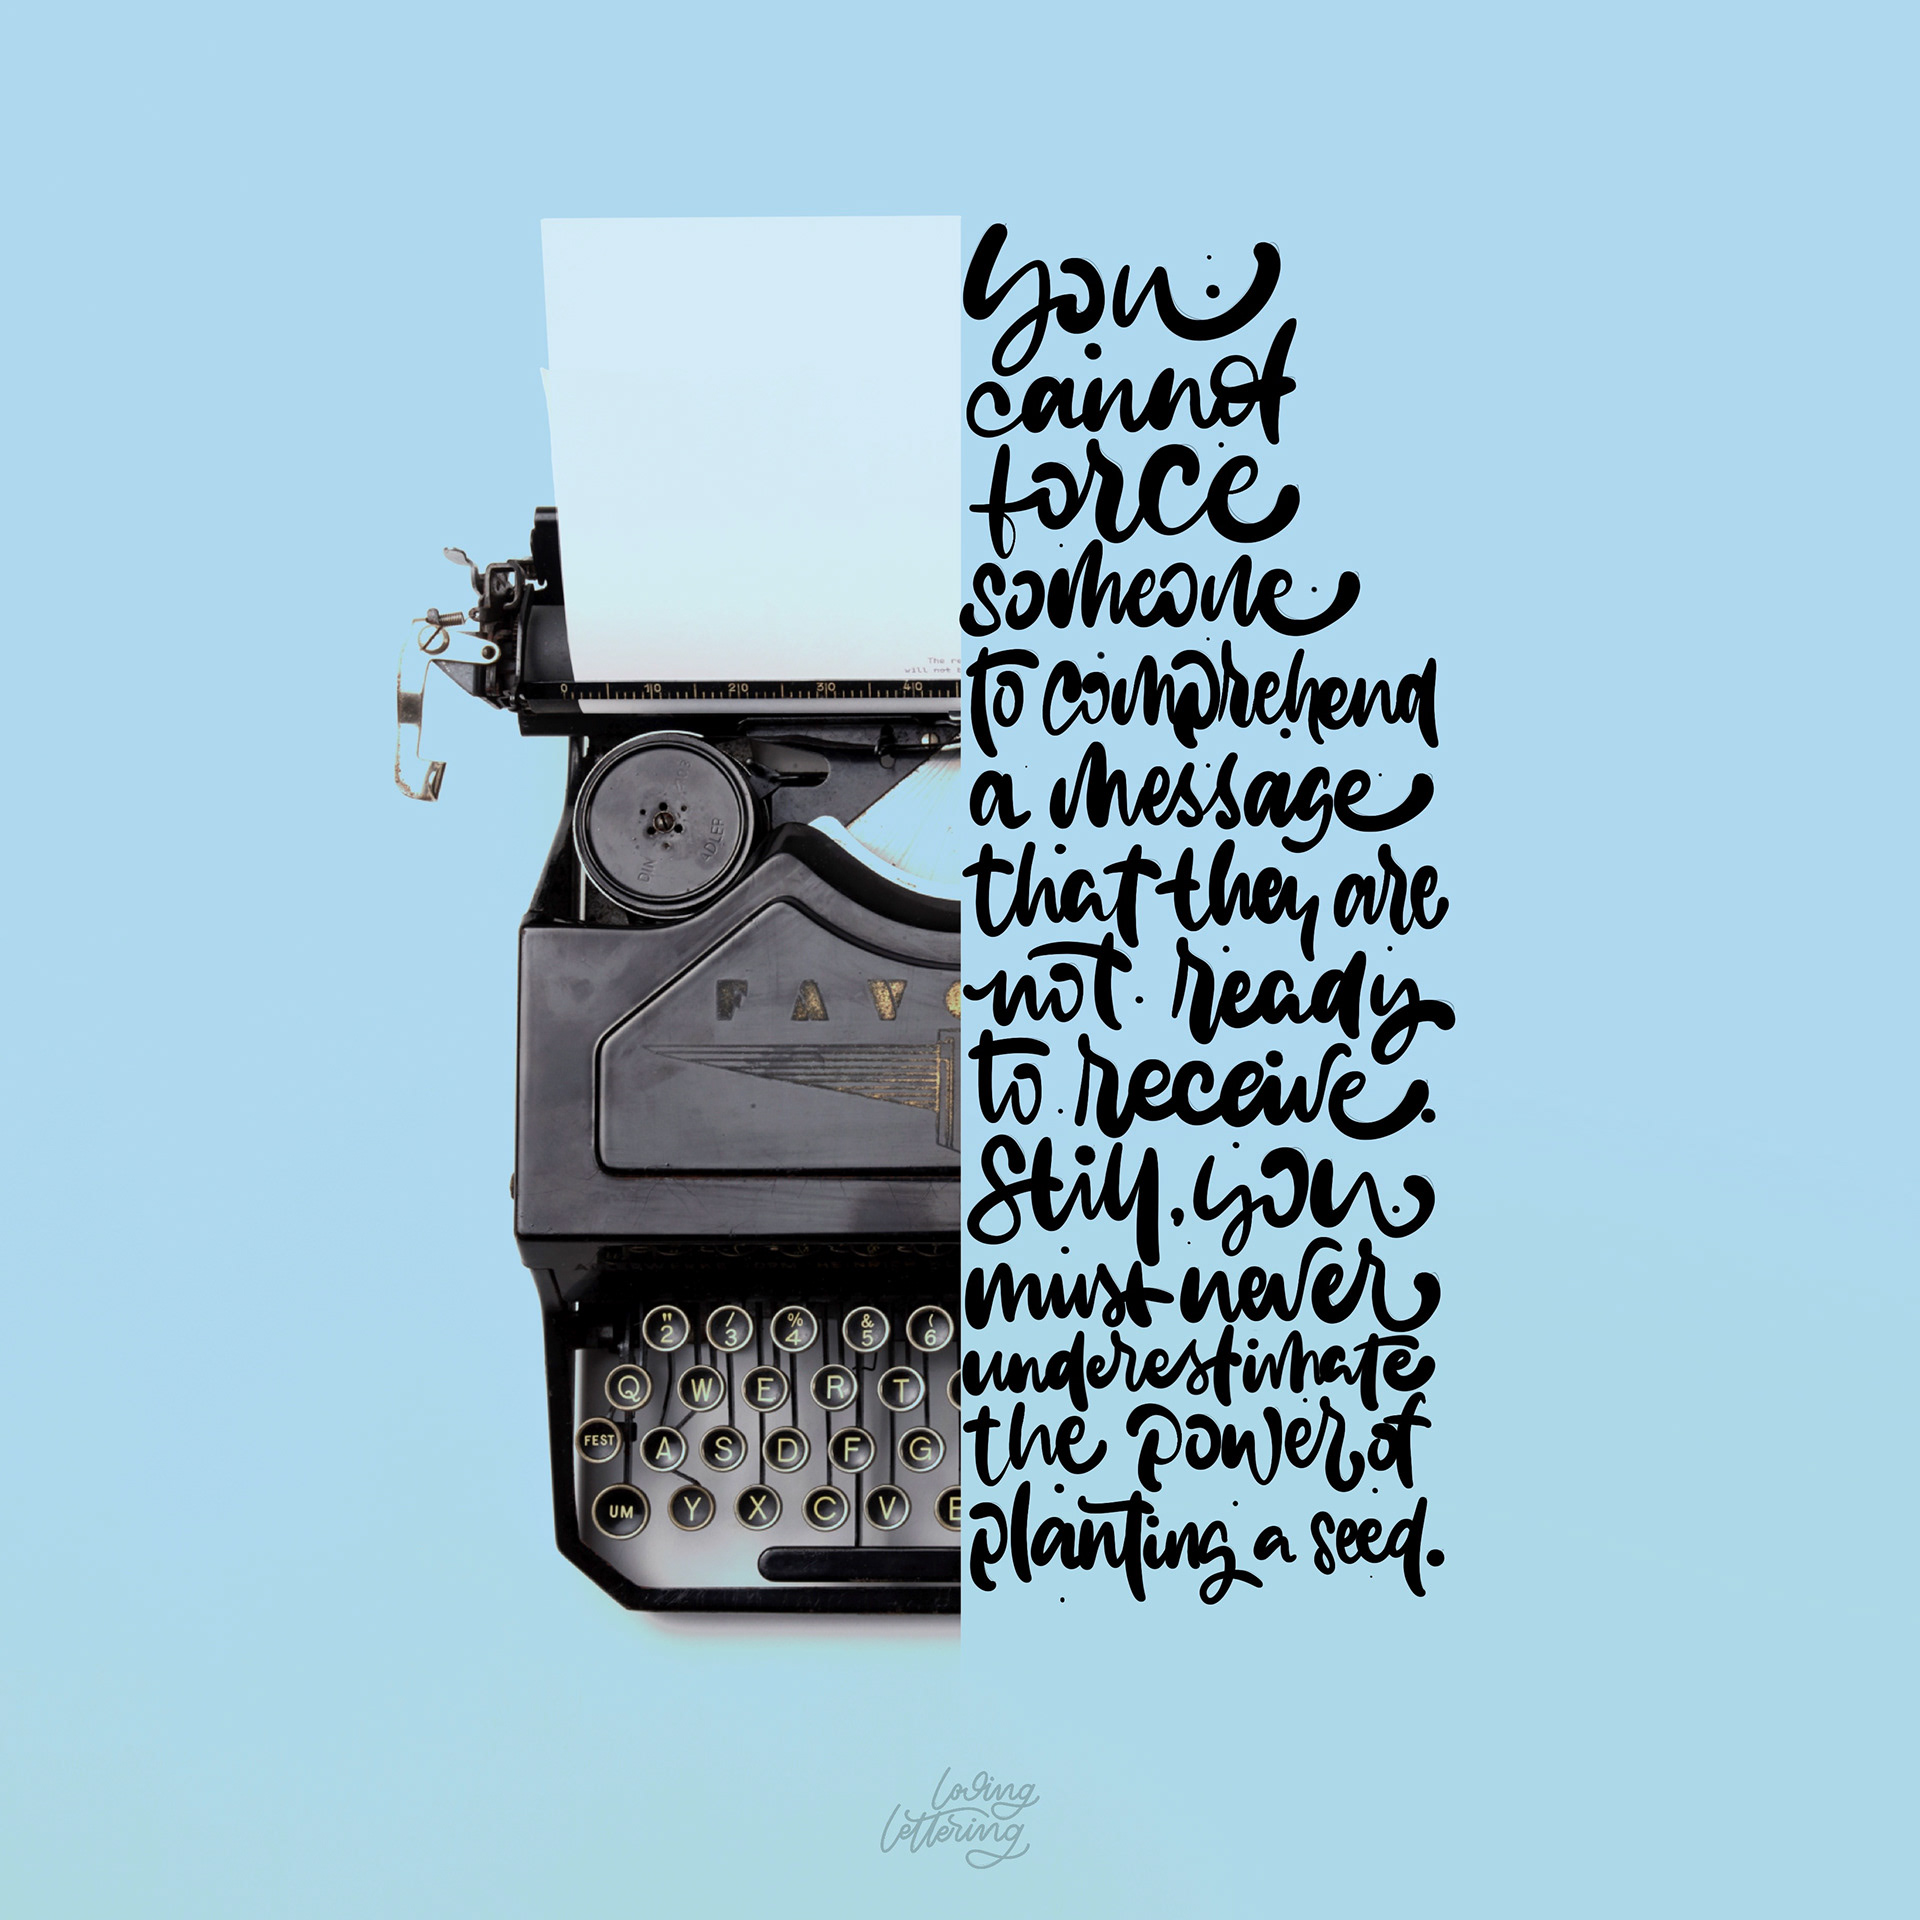 you
cannot
force
someone
to comprehend
a message
that they are
not ready
to receive.
Still, you
must never
underestimate
the power of
planting a seed.
The re
will not
0 10 20 30 40
DIN ADLER
FAVO
" / % & (
2 3 4 5 6
Q W E R T
FEST A S D F G
UM Y X C V
loving
lettering